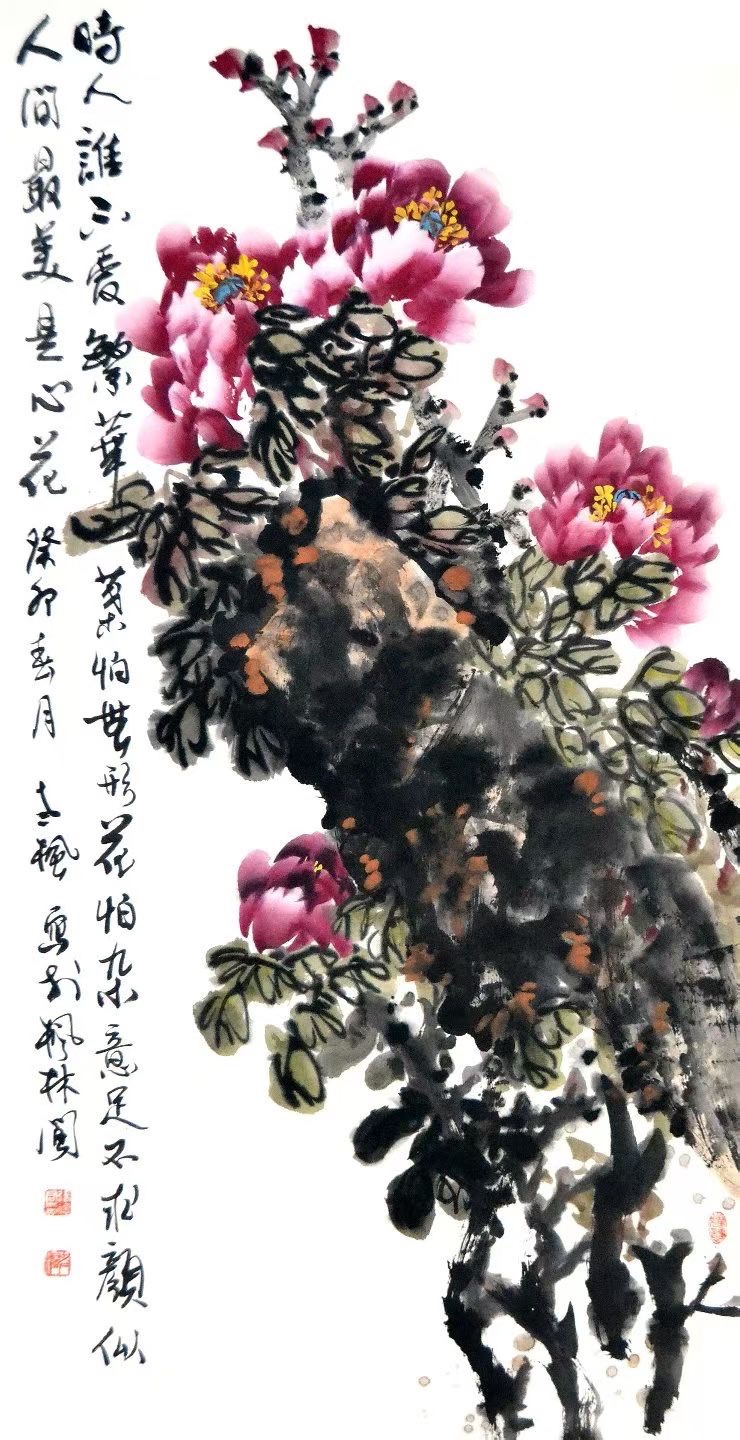 時人誰不愛繁華葉怕無形花怕杂意足不求顏似
人間最美是心花 癸卯春月 志楓寫於楓林閣